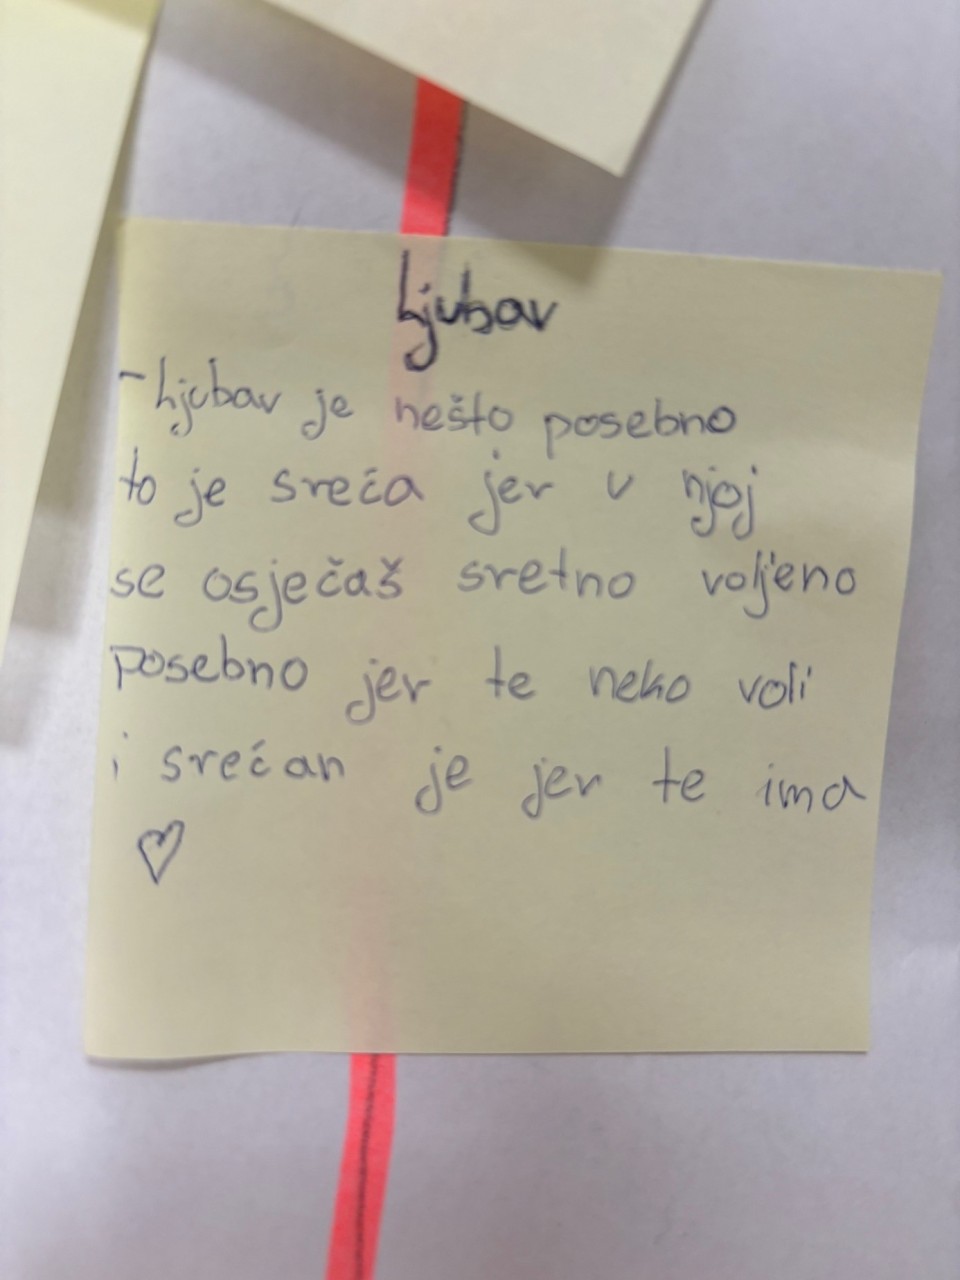 Ljubav
- Ljubav je nešto posebno
to je sreća jer u njoj
se osječaš sretno voljeno
posebno jer te neko voli
i srećan je jer te ima
♡